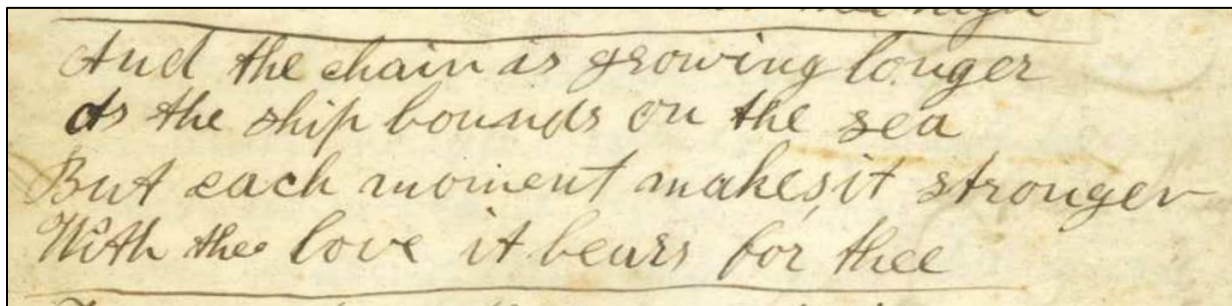 And the chain is growing longer
As the ship bounds on the sea
But each moment makes it stronger
With the love it bears for thee